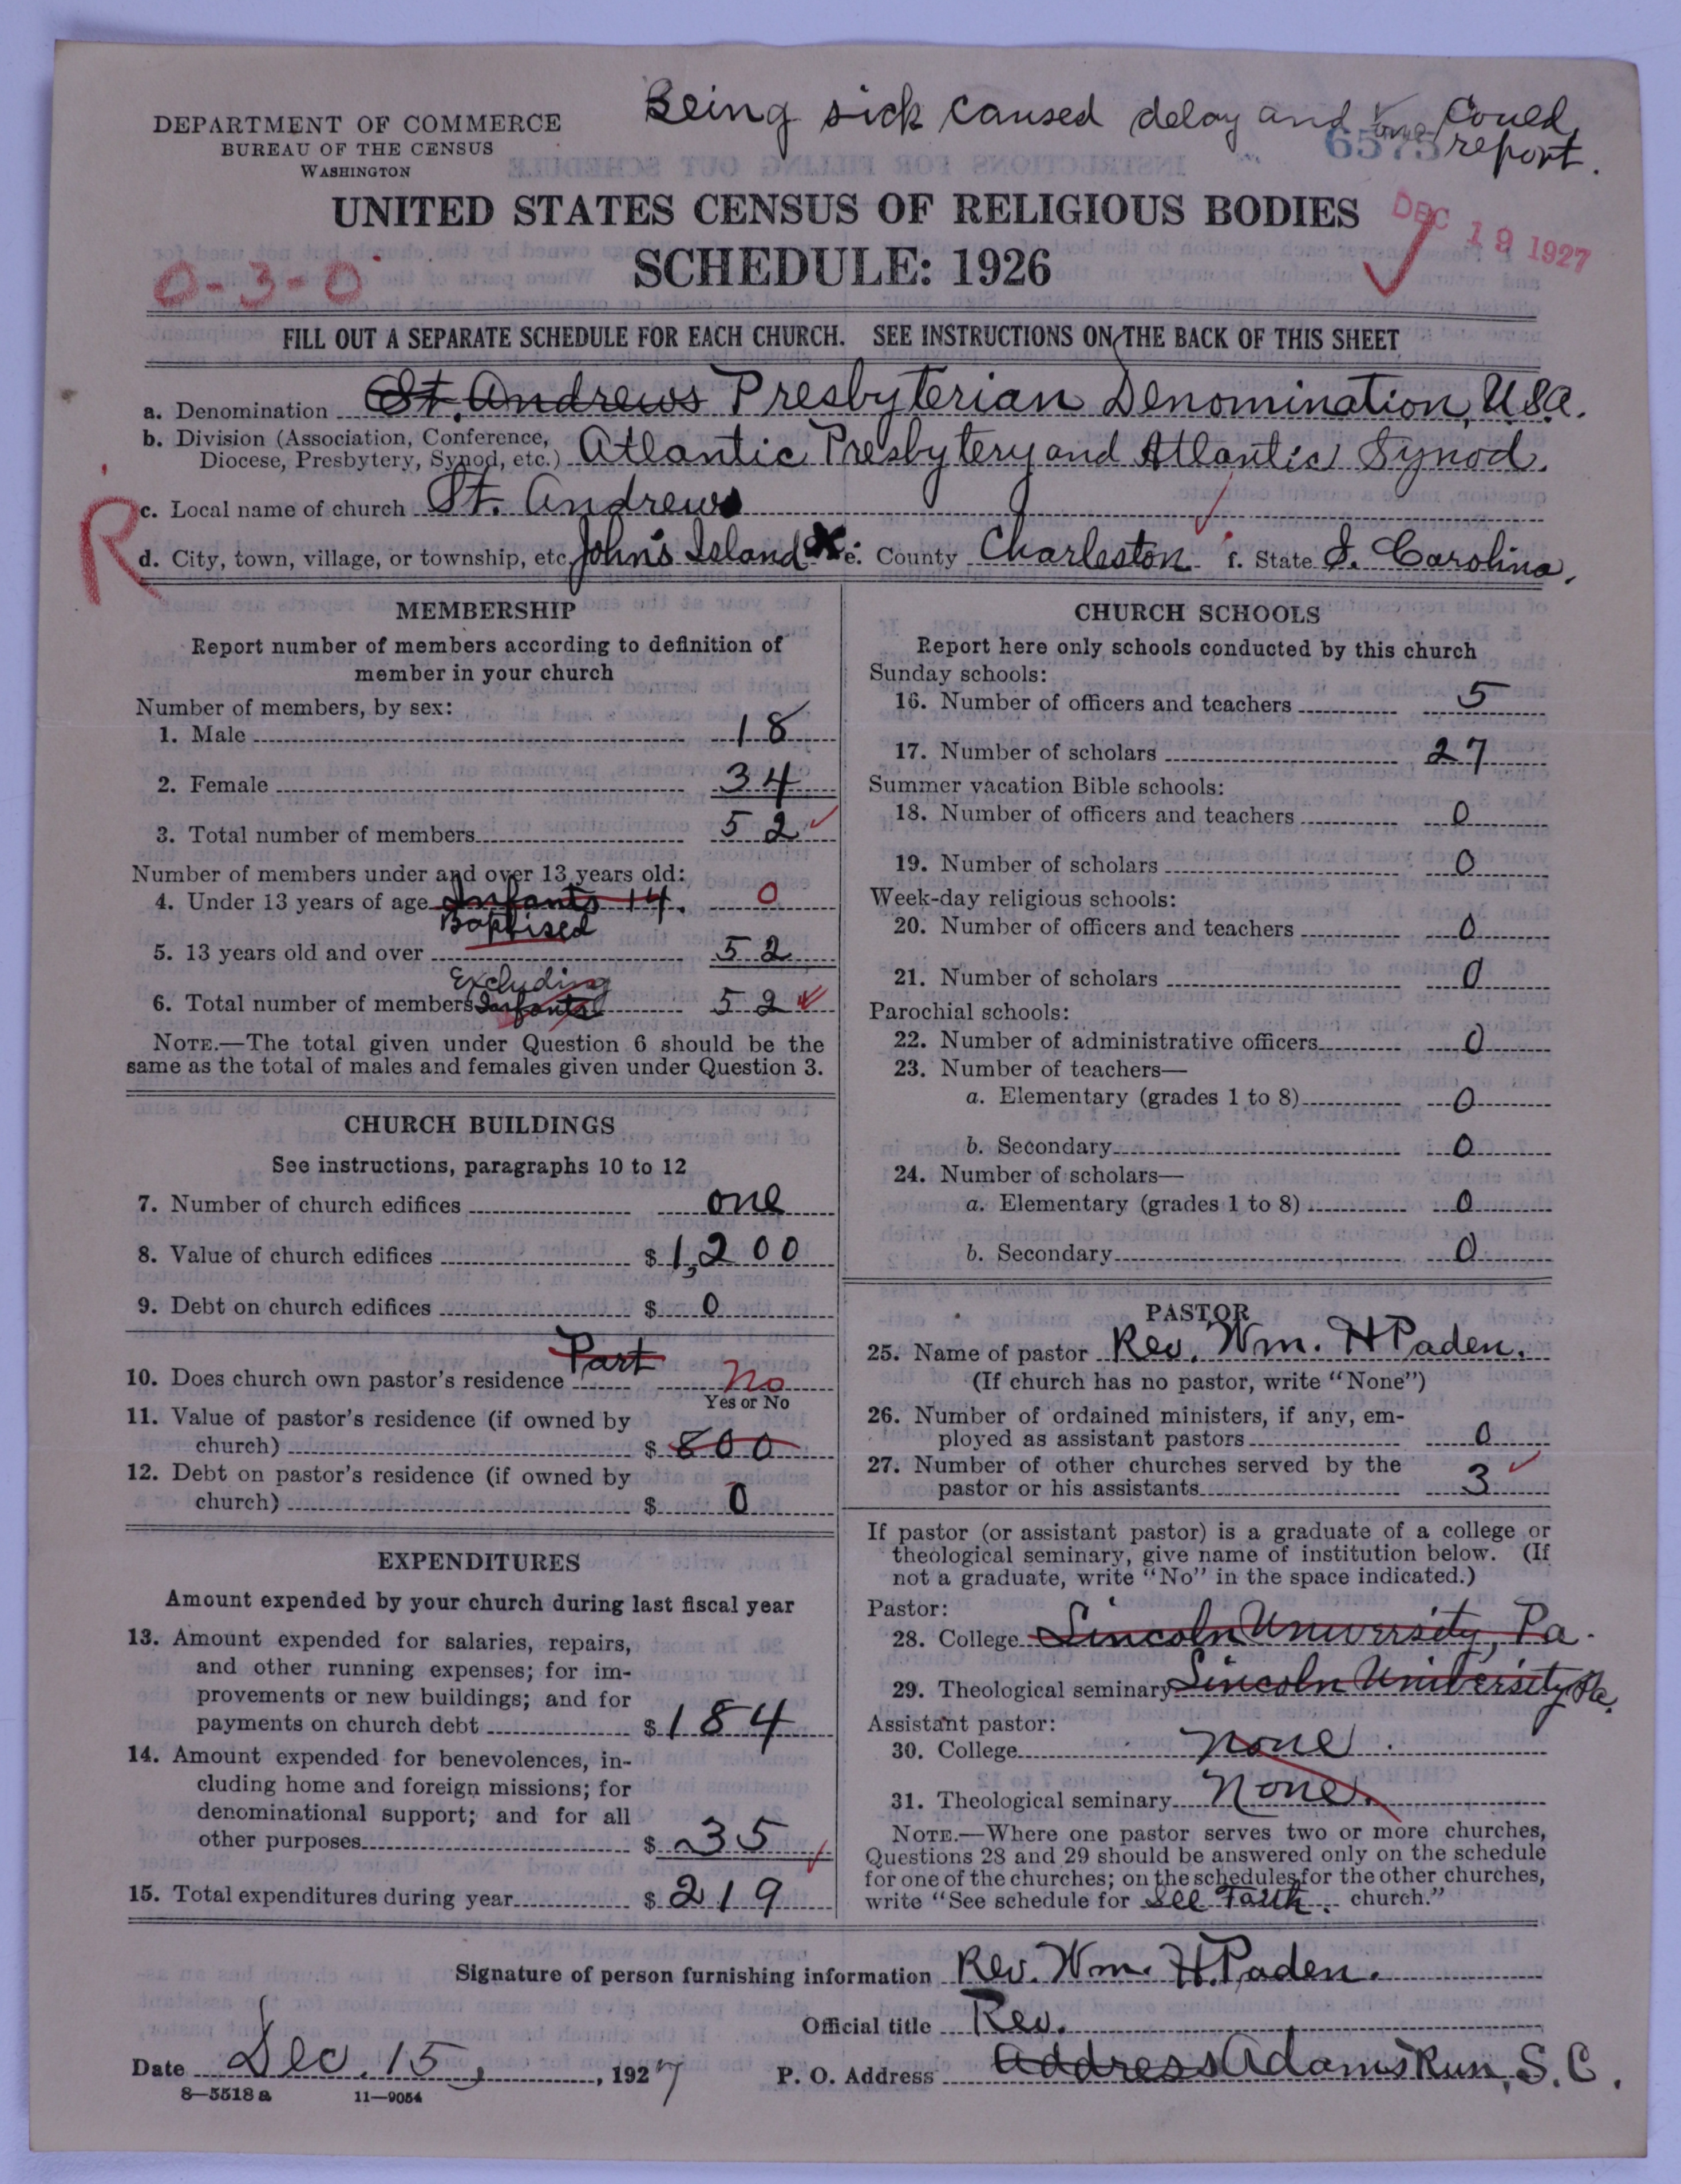 Being sick caused delay and could
DEPARTMENT OF COMMERCE
BUREAU OF THE CENSUS
WASHINGTON
6575 report.
UNITED STATES CENSUS OF RELIGIOUS BODIES
SCHEDULE: 1926
DEC 19 1927
0-3-0
FILL OUT A SEPARATE SCHEDULE FOR EACH CHURCH. SEE INSTRUCTIONS ON THE BACK OF THIS SHEET
a. Denomination St. Andrews Presbyterian Denomination, USA.
b. Division (Association, Conference, Diocese, Presbytery, Synod, etc.) Atlantic Presbytery and Atlantic Synod.
R
c. Local name of church St. Andrews
d. City, town, village, or township, etc. John's Island e. County Charleston f. State S. Carolina.
MEMBERSHIP
Report number of members according to definition of
member in your church
Number of members, by sex:
1. Male 18
2. Female 34
3. Total number of members 52
Number of members under and over 13 years old:
4. Under 13 years of age Infants 14. 0
Baptised
5. 13 years old and over 52
Excluding
6. Total number of members Infants 52
NOTE.—The total given under Question 6 should be the
same as the total of males and females given under Question 3.
CHURCH BUILDINGS
See instructions, paragraphs 10 to 12
7. Number of church edifices one
8. Value of church edifices $ 1,200
9. Debt on church edifices $ 0
Part
10. Does church own pastor's residence No
Yes or No
11. Value of pastor's residence (if owned by
church) $ 800
12. Debt on pastor's residence (if owned by
church) $ 0
EXPENDITURES
Amount expended by your church during last fiscal year
13. Amount expended for salaries, repairs,
and other running expenses; for im-
provements or new buildings; and for
payments on church debt $ 184
14. Amount expended for benevolences, in-
cluding home and foreign missions; for
denominational support; and for all
other purposes $ 35
15. Total expenditures during year $ 219
CHURCH SCHOOLS
Report here only schools conducted by this church
Sunday schools:
16. Number of officers and teachers 5
17. Number of scholars 27
Summer vacation Bible schools:
18. Number of officers and teachers 0
19. Number of scholars 0
Week-day religious schools:
20. Number of officers and teachers 0
21. Number of scholars 0
Parochial schools:
22. Number of administrative officers 0
23. Number of teachers—
a. Elementary (grades 1 to 8) 0
b. Secondary 0
24. Number of scholars—
a. Elementary (grades 1 to 8) 0
b. Secondary 0
PASTOR
25. Name of pastor Rev. Wm. H Paden.
(If church has no pastor, write "None")
26. Number of ordained ministers, if any, em-
ployed as assistant pastors 0
27. Number of other churches served by the
pastor or his assistants 3
If pastor (or assistant pastor) is a graduate of a college or
theological seminary, give name of institution below. (If
not a graduate, write "No" in the space indicated.)
Pastor:
28. College Lincoln University, Pa.
29. Theological seminary Lincoln University Pa.
Assistant pastor:
30. College none
31. Theological seminary None.
NOTE.—Where one pastor serves two or more churches,
Questions 28 and 29 should be answered only on the schedule
for one of the churches; on the schedules for the other churches,
write "See schedule for See Faith. church."
Signature of person furnishing information Rev. Wm. H. Paden.
Official title Rev.
Date Dec. 15, 1927 P. O. Address Address Adams Run, S.C.
8—5518 a 11—9054